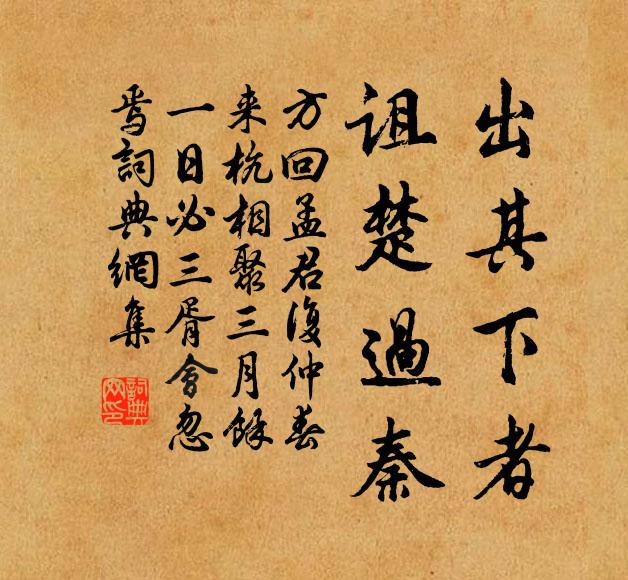 出其下者
詛楚過秦
方回孟君復仲春
来杭相聚三月餘
一日必三胥會忽
焉詞典網集
詞典网印